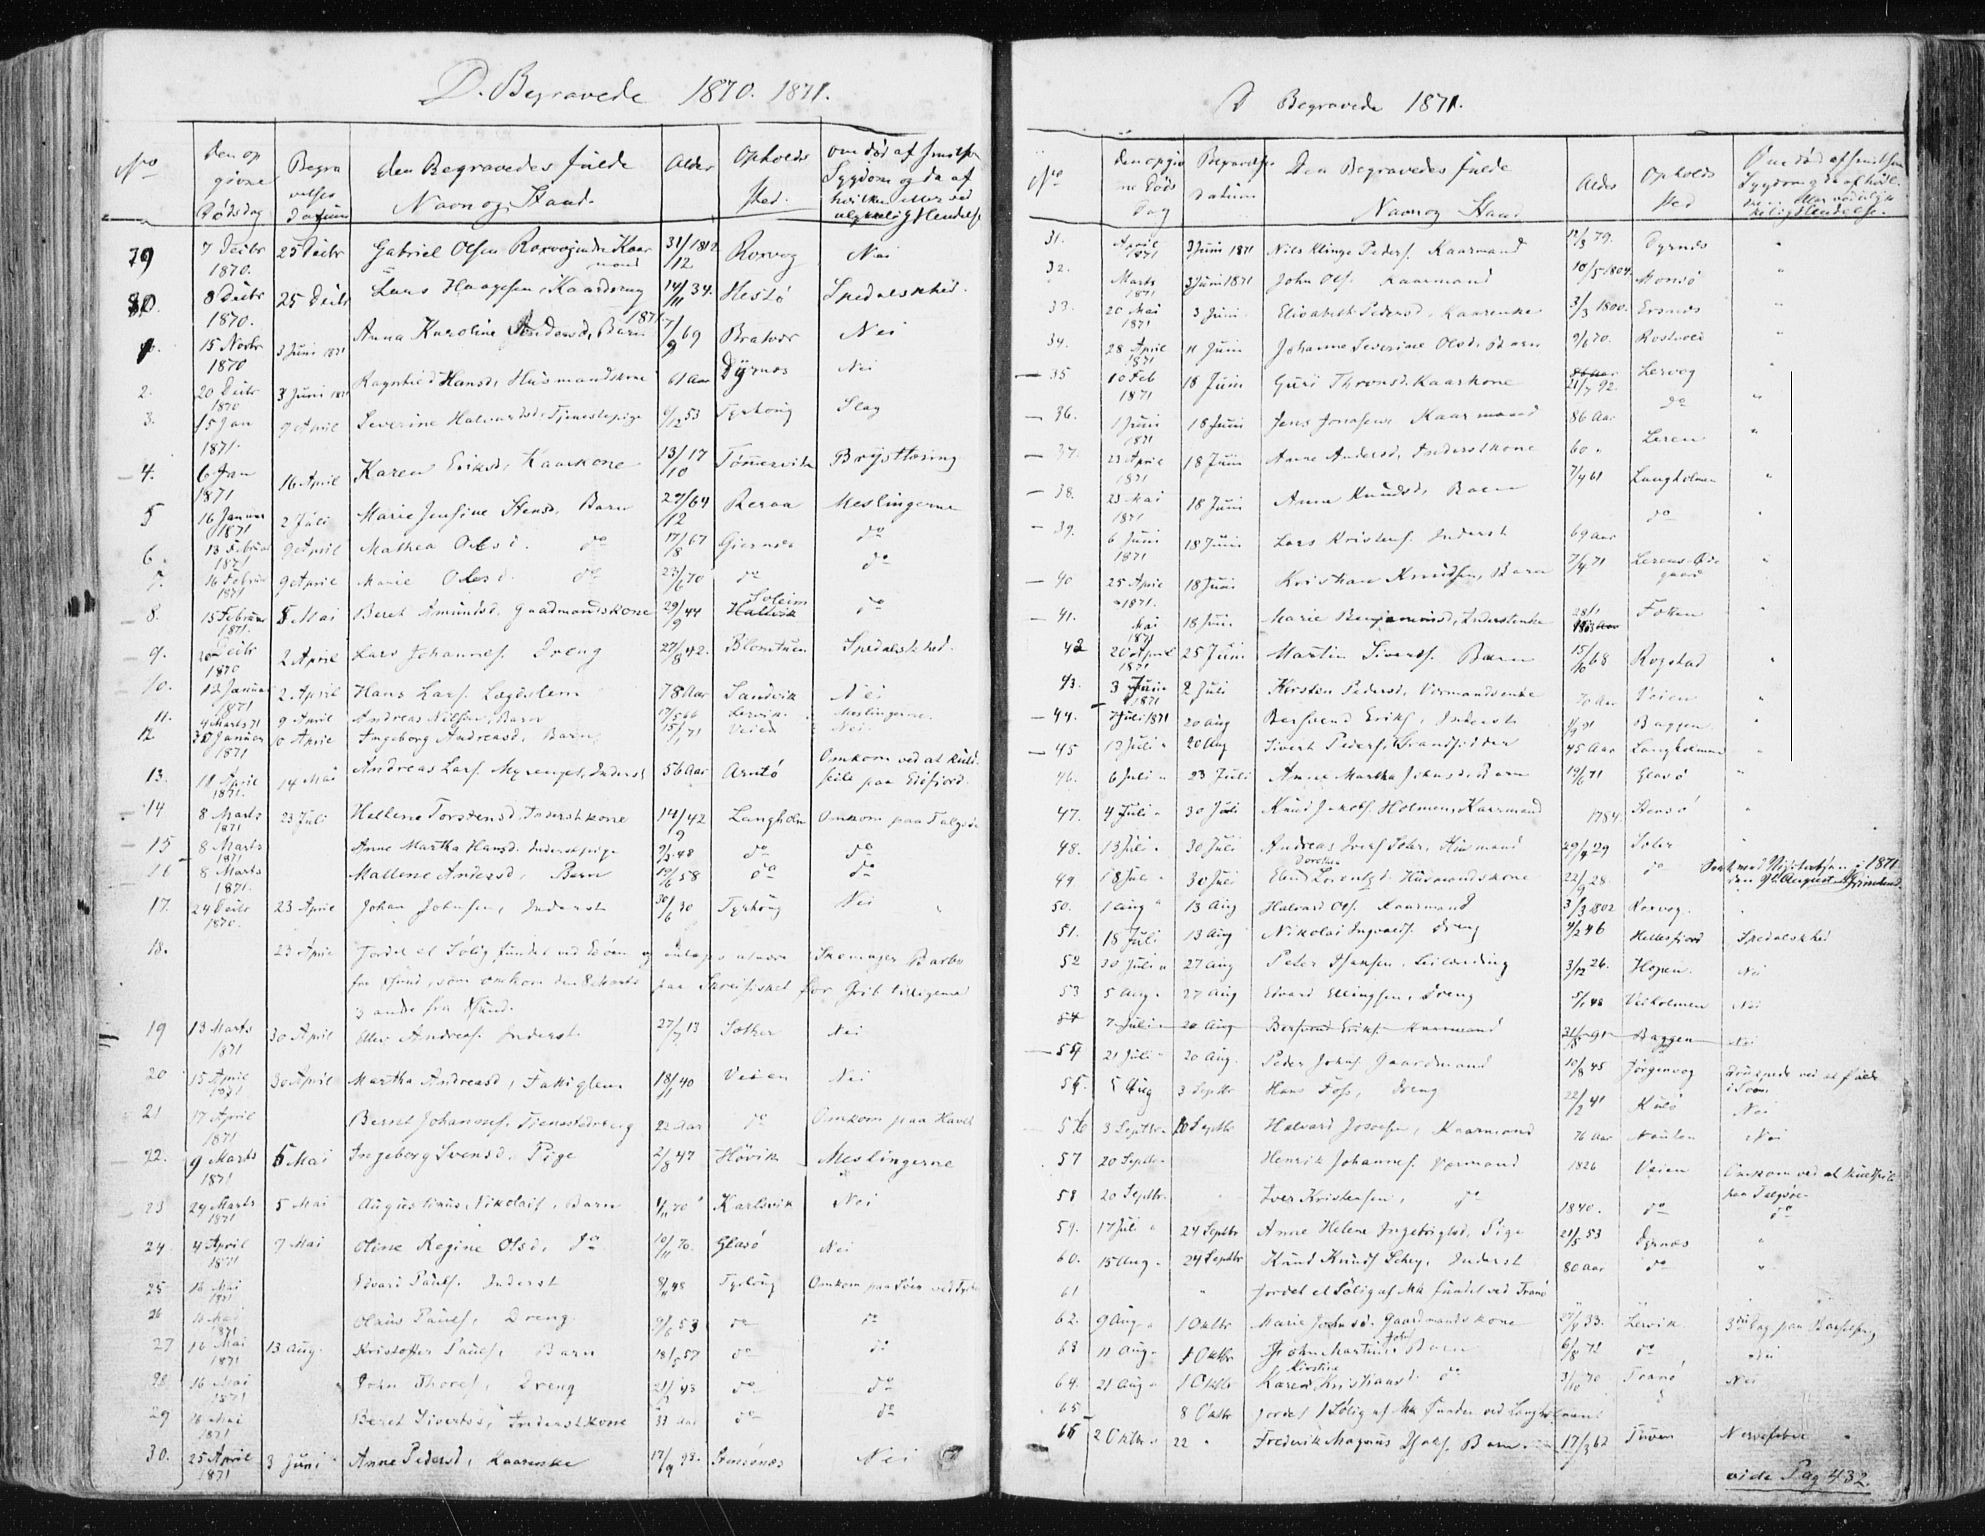 D. Begravede 1870. 1871.
No | Den opgivne Dødsdag | Begravelses Datum | Den Begravedes fulde Navn og Stand. | Alder | Opholdssted. | om død af smitsom Sygdom og da af hvilken eller ved ulykkelig Hændelse
79 | 7 Decbr 1870. | 25 Decbr | Gabriel Olsen Korsvog Kaarmand | 31/12 1817 | Korsvog | Nei
80. | 8 Decbr 1870. | 25 Decbr | Lars Haagensen, Kaardreng | 14/11 34. | Hestö | Spedalskhed.
1871.
1. | 15 Novbr 1870 | 3 Juni 1871 | Anna Karoline Andersd, Barn | 7/9 69 | Bratvær | Nei
2. | 20 Decbr 1870 | 3 Juni 1871 | Ragnhild Hansd, Husmandskone | 61 Aar | Dyrnes | Nei
3. | 15 Jan 1871. | 9 April | Severine Halvardsd, Tjenestepige | 6/12 53 | Tyrhoug | Slag
4. | 6 Jan 1871 | 16 April | Karen Eriksd, Kaarkone | 13/10 17 | Tömmervik | Brystlæsing
5 | 16 Januar 1871 | 2 Juli | Marie Jensine Stensd, Barn | 29/12 64 | Reraa | Meslingerne
6. | 13 Februar 1871 | 9 April | Mathea Olsd. do | 17/8 67 | Gjernes | do
7. | 16 Februar 1871 | 9 April | Marie Olsd. do | 23/6 70 | do | do
8. | 15 Februar 1871. | 5 Mai | Beret Amundsd. Gaardmandskone | 29/9 44 | Soleim | do
9. | 20 Decbr 1870 | 2 April | Lars Johannes. Dreng | 27/8 42. | Blomtuen | Spedalskhed.
10. | 12 Januar 1871 | 2 April | Hans Lars. Lægdslem | 78 Aar | Sandvik | Nei
11. | 4 Marts 71 | 9 April | Andreas Nilsen, Barn | 17/5 66 | Lervik. | Meslingerne.
12. | 30 Januar 1871 | 10 April | Ingeborg Andreasd, Barn, | 15/1 71 | Veien | Nei
13. | 18 April 1871. | 14 Mai | Andreas Lars. Myrenget, Inderst | 56 Aar | Arntö | Omkom ved at kuldseile paa Edfjord.
14 | 8 Marts 1871 | 23 Juli | Hellene Torstensd. Inderstkone | 14/9 42 | Langholm | Omkom paa Talgsö
15 | 8 Marts 1871 | Anne Martha Hansd. Inderstpige | 9/2 48 | do | do
16 | 8 Marts 1871. | Mallene Andersd, Barn | 19/6 58 | do | do
17. | 24 Decbr 1870. | 23 April | Johan Johnsen, Inderst | 30/6 30 | Tyrhoug | Nei
18. | 23 April | Jordet et Sølig fundet ved Edöen og antages at være Skomager Barbo
fra Xsund, som omkom den 8 Marts paa Skreifisket for Grib tilligemed
3 andre fra Xsund.
19 | 13 Marts 1871 | 30 April | Ellev Andreas. Inderst | 27/7 13 | Sæther | Nei
20 | 15 April 1871 | 30 April | Martha Andreasd, Fattiglem | 18/1 40 | Veien | Nei
21 | 17 April 1871 | Bernt Johannes. Tjenestedreng | 22 Aar | do | Omkom paa Havet
22. | 9 Marts 1871 | 5 Mai | Ingeborg Svensd. Pige | 2/8 47 | Hövik | Meslingerne
23 | 29 Marts 1871 | 5 Mai | Augustinus Nikolais, Barn | 4/11 70 | Karlsvik | Nei
24. | 4 April 1871 | 7 Mai | Oline Regine Olsd, do | 10/11 70. | Glasö | Nei
25 | 16 Mai 1871 | Edvard Pauls. Inderst | 9/11 48 | Tyrhoug | Omkom paa Söen ved Tyrh
26 | 16 Mai 1871 | Olaus Pauls, Dreng | 9/6 53 | do | do
27 | 16 Mai 1871 | 13 Aug. | Kristoffer Pauls, Barn | 18/5 57 | do | do
28 | 16 Mai 1871 | John Thores, Dreng | 21/1 48 | do | do
29 | 16 Mai 1871 | Beret Sivertsd, Inderstkone | 33 Aar | do | do
30. | 25 April 1871 | 3 Juni | Anne Pedersd, Kaarenke | 17/9 92. | Stensönes | Nei
D Begravede 1871.
No | Den opgivne Døds Dag | Begravelses Datum | Den Begravedes fulde Navn og Stand | Alder | Opholds Sted | Om død af smitsom Sygdom og da af hvilken. Eller ved ulykkelig Hændelse.
31. | April 1871 | 3 Juni 1871 | Nils Klinge Peders. Kaarmand | 12/3 79. | Dyrnes | "
32. | Marts 1871 | 3 Juni 1871 | John Ols. Kaarmand | 10/5 1804. | Monsö | "
33. | 20 Mai 1871 | 3 Juni | Elisabeth Pedersd, Kaarenke | 3/3 1800. | Ersnes | "
34. | 28 April 1871 | 11 Juni | Johanne Severine Olsd, Barn | 9/6 70. | Rostvold | "
35 | 10 Feb 1871 | 18 Juni | Guri Thronsd. Kaarkone | 21/7 92. | Lervog | "
36. | 1 Juni 1871 | 18 Juni | Jens Jonasen, Kaarmand | 86 Aar | do | "
37. | 23 April 1871 | 18 Juni | Anne Andersd, Inderstkone | 60 " | Leren | "
38. | 23 Mai 1871 | 18 Juni | Anne Knudsd, Barn | 7/4 61 | Langholmen | "
39. | 6 Juni 1871 | 18 Juni | Lars Kristens. Inderst | 69 Aar | do | "
40 | 25 April 1871. | 18 Juni | Kristian Knudsen, Barn | 7/4 71 | Lerens Ödegaard | "
41. | Mai 1871 | 18 Juni. | Marie Benjaminsd, Inderstenke | 28/1 | Foken | "
42 | 20 April 1871 | 25 Juni | Martin Siverts. Barn | 15/10 68 | Rogstad | "
43. | 3 Juni 1871 | 2 Juli | Kirsten Pedersd, Vormandsenke | 70 Aar | Veien | "
44. | 7 Juli 1871 | 20 Aug | Bersvend Eriks, Inderst | 91 | Baggen | "
45 | 12 Juli " | 20 Aug | Sivert Peders, Strandsidder | 45 Aar | Langholmen | "
46. | 6 Juli " | 23 Juli | Anne Martha Johnsd, Barn | 19/6 71 | Glasö | "
47. | 4 Juli " | 30 Juli | Knud Jakobs. Holmen, Kaarmand | 1784. | Stensö | "
48. | 13 Juli " | 30 Juli | Andreas Ivers Soler, Husmand | 29/4 29 | Soler | "
49. | 18 Juli " | 30 Juli | Elen Dorthea Lorentsd. Husmandskone | 22/9 28. | do
50. | 1 Aug " | 13 Aug | Halvard Ols. Kaarmand | 3/3 1802 | Korsvog. | "
51. | 18 Juli | 13 Aug | Nikolai Ingvalds. Dreng | 4/2 46 | Hellesfjord | Spedalskhed
52 | 30 Juli " | 27 Aug | Peter Isaksen. Leilending | 3/12 26. | Hopen | Nei
53 | 5 Aug. " | 27 Aug | Edvard Ellingsen, Dreng | 5/1 48 | Vedholmen | Nei
54 | 7 Juli " | 20 Aug | Bersvend Eriks. Kaarmand | 31/8 91 | Baggen | Nei
54 | 21 Juli " | 20 Aug. | Peder Johns Gaardmand | 10/8 45 | Jörgenvog
55. | 5 Aug | 3 Septbr | Hans Foss, Dreng | 22/2 41 | Kulö | Nei
56 | 3 Septbr " | 10 Septbr | Halvard Josefsen, Kaarmand | 76 Aar | Nausten | Nei
57 | 20 Septbr " | Henrik Johannes. Vormand | 1826 | Veien | Omkom ved at kuldseile paa Talgsöe
58 | 20 Septbr. | " | Iver Kristensen, do | 1840. | do | do
59. | 17 Juli " | 24 Septbr | Anne Helene Ingebrigtsd, Pige | 21/5 53 | Dyrnes | "
60. | 15 Aug. " | 24 Septbr | Knud Knuds Schey, Inderst | 80 Aar | do | "
61 | " | Jordet et Sølig af Mk fundet ved Tranö
62. | 9 Aug. " | 1 Oktbr | Marie Johnsd. Gaardmandskone | 27/6 33. | Lervik
63 | 11 Aug " | 1 Oktbr | John Martin Johs Barn | 6/8 71 | do | Nei
64. | 21 Aug " | 1 Oktbr | Karen Kirstine Kristiansd. do | 3/10 70 | Tranö | Nei
65 | 8 Oktbr | Jordet 1 Sølig af Mk funden ved Langholmene
66 | 2 Oktbr " | 22 " | Frederik Magnus Isaks. Barn | 17/3 62 | Tuven | Nervefeber
vide Pag 432.